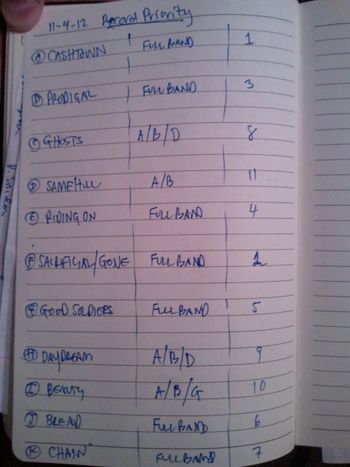 11-4-12 Record Priority
Ⓐ CASHTOWN FULL BAND 1
Ⓑ PRODIGAL FULL BAND 3
Ⓒ GHOSTS A/B/D 8
Ⓓ SAME HILL A/B 11
Ⓔ RIDING ON FULL BAND 4
Ⓕ SACRIFICIAL/GONE FULL BAND 2
GOOD SOLDIERS FULL BAND 5
Ⓗ DAYDREAM A/B/D 9
Ⓘ BEAUTY A/B/G 10
Ⓙ BREAD FULL BAND 6
Ⓚ CHAIN FULL BAND 7